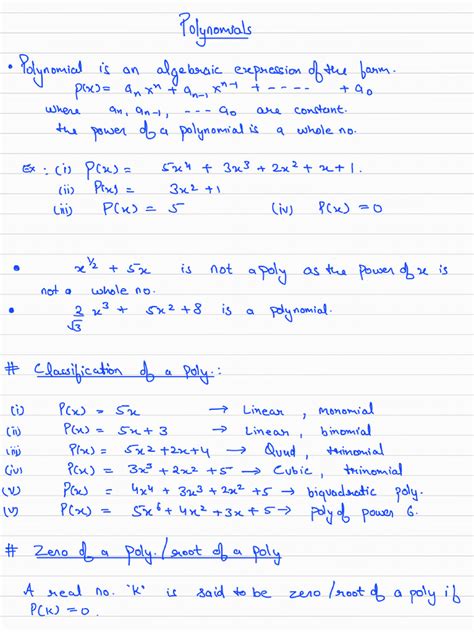 Polynomials
• Polynomial is an algebraic expression of the form.
P(x) = aₙxⁿ + aₙ₋₁xⁿ⁻¹ + ----- + a₀
where aₙ, aₙ₋₁, --- a₀ are constant.
the power of a polynomial is a whole no.
Ex : (i) P(x) = 5x⁴ + 3x³ + 2x² + x + 1.
(ii) P(x) = 3x² + 1
(iii) P(x) = 5 (iv) P(x) = 0
• x^½ + 5x is not a poly as the power of x is
not a whole no.
• 2/√3 x³ + 5x² + 8 is a polynomial.
# Classification of a poly.:
(i) P(x) = 5x → Linear, monomial
(ii) P(x) = 5x + 3 → Linear, binomial
(iii) P(x) = 5x² + 2x + 4 → Quad, trinomial
(iv) P(x) = 3x³ + 2x² + 5 → Cubic, trinomial
(v) P(x) = 4x⁴ + 3x³ + 2x² + 5 → biquadratic poly.
(v) P(x) = 5x⁶ + 4x² + 3x + 5 → poly of power 6.
# Zero of a poly./root of a poly
A real no. 'k' is said to be zero/root of a poly if
P(k) = 0.